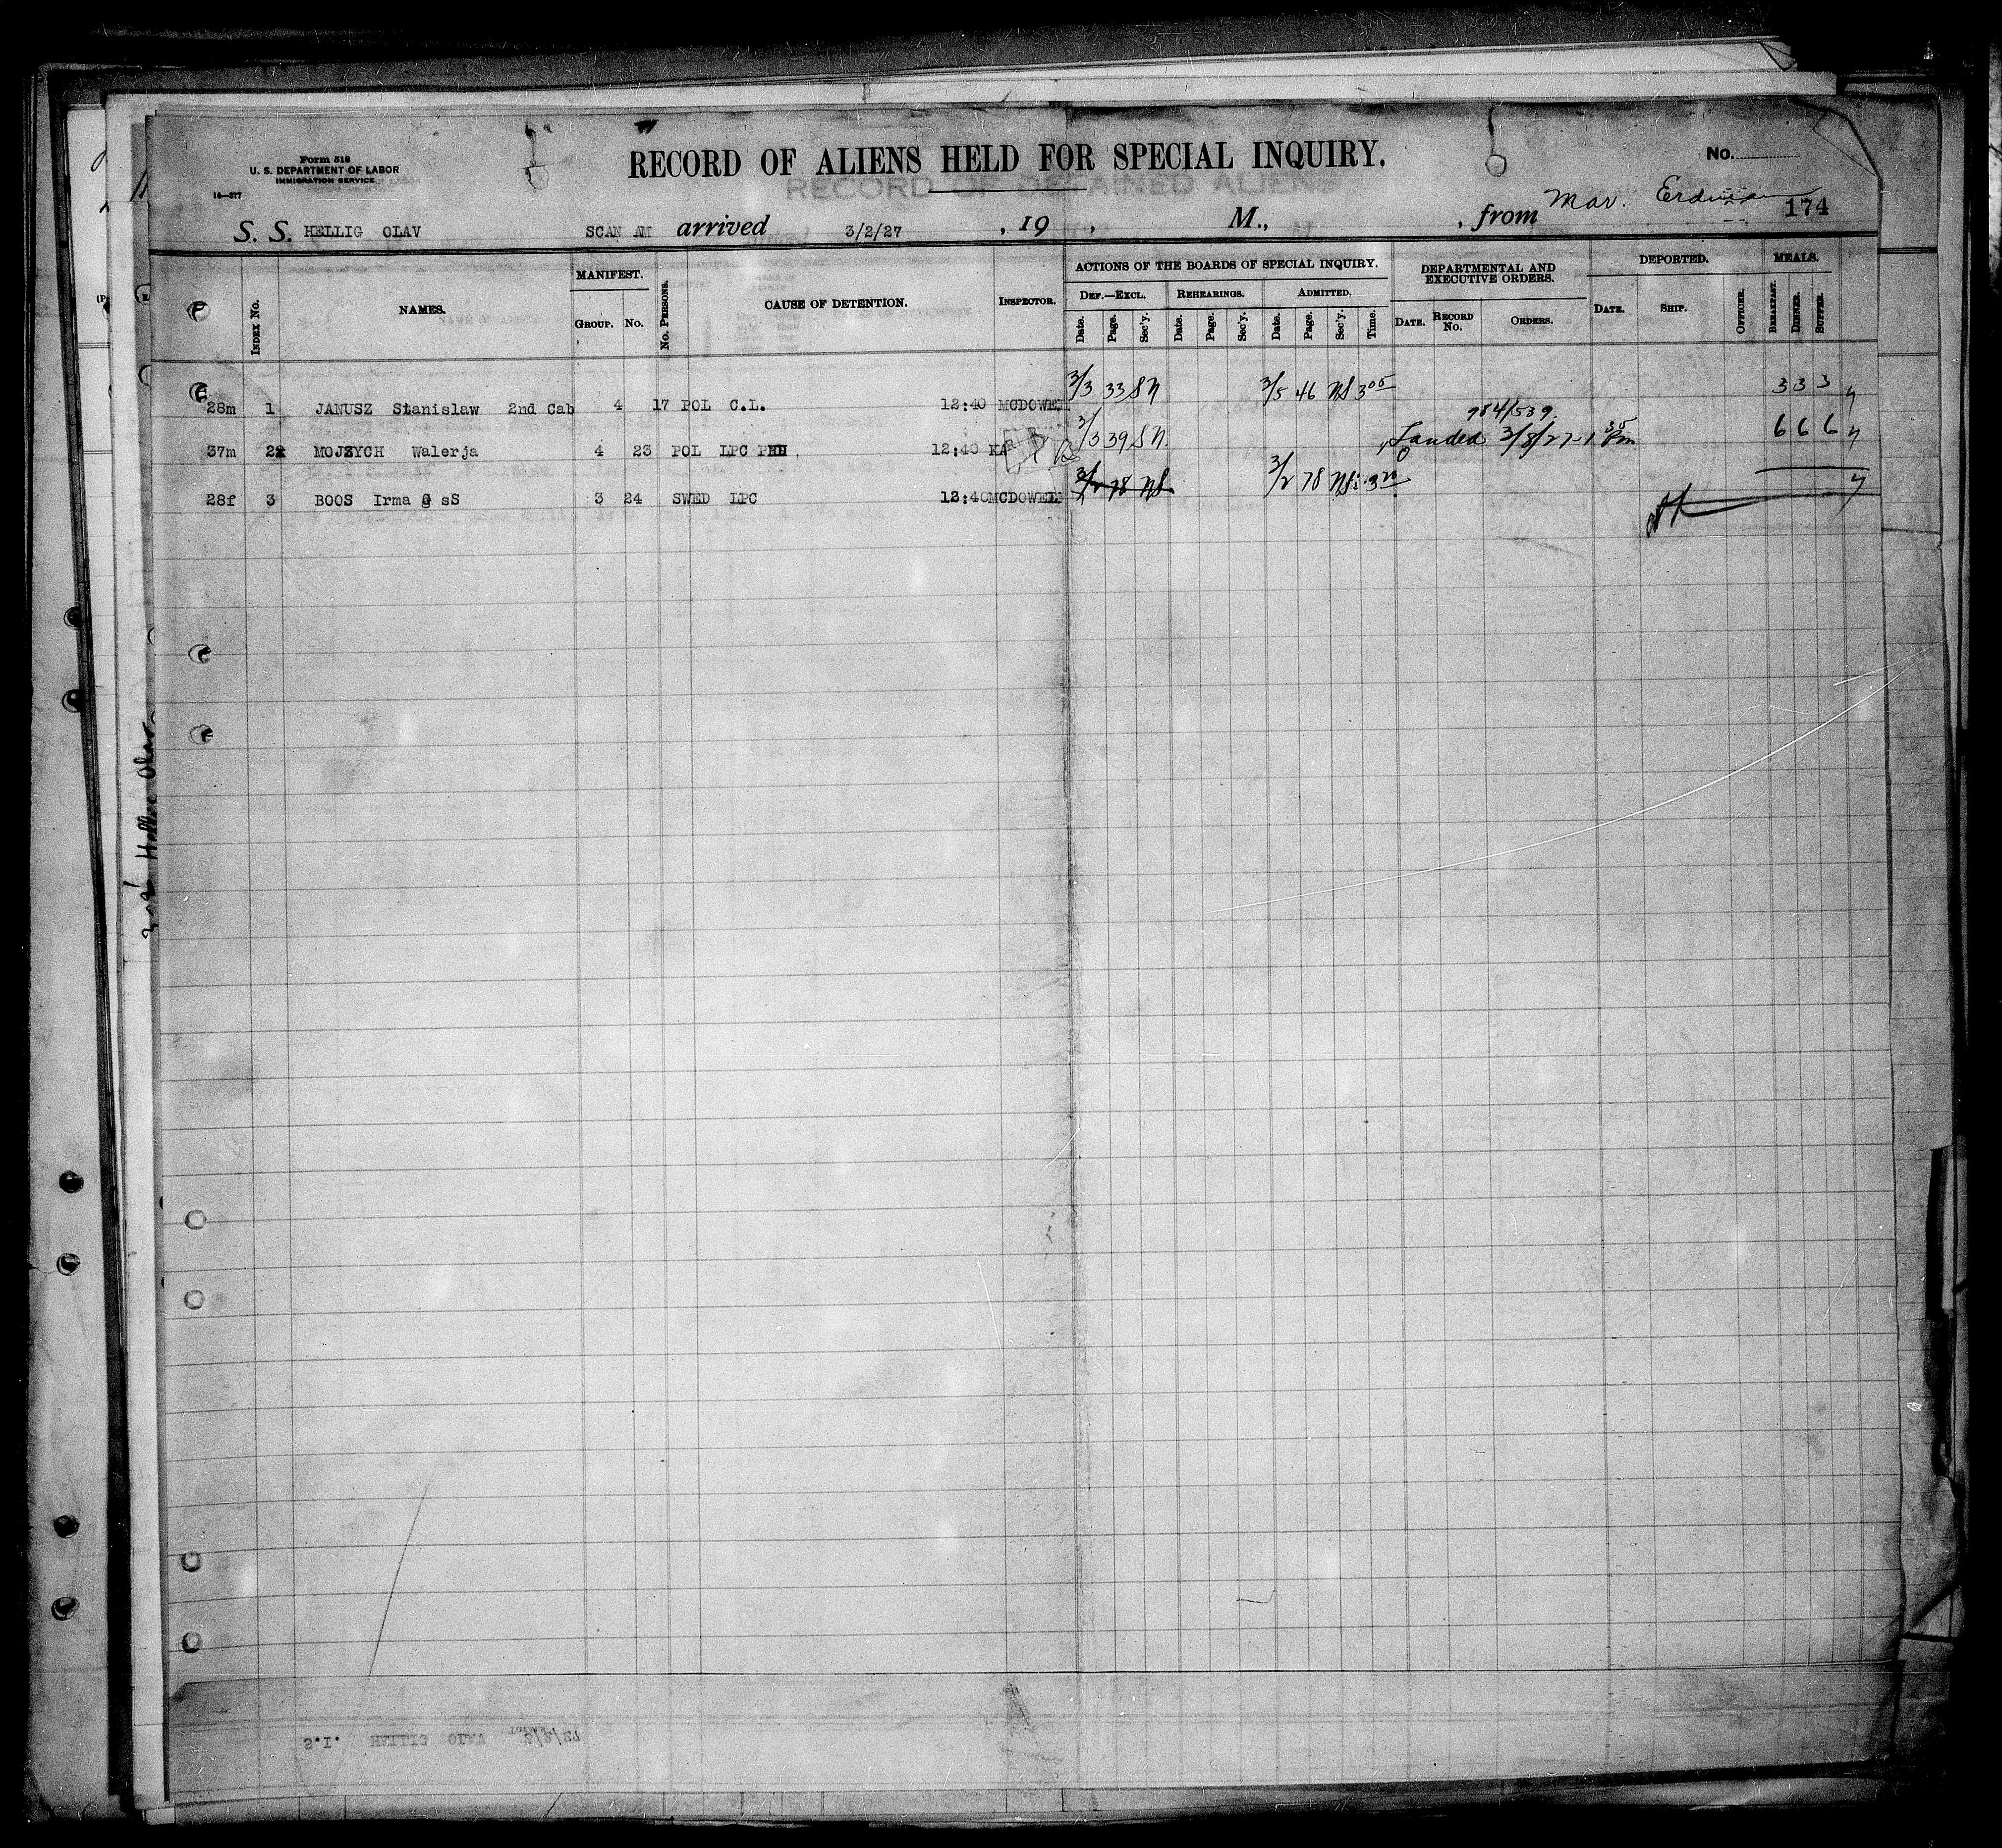 Form 518
U. S. DEPARTMENT OF LABOR
IMMIGRATION SERVICE
16—377
RECORD OF ALIENS HELD FOR SPECIAL INQUIRY.
RECORD OF DETAINED ALIENS
No.
S. S. HELLIG OLAV SCAN AM arrived 3/2/27 , 19 , M., , from Mar. 174
INDEX No. NAMES. MANIFEST. GROUP. No. No. PERSONS. CAUSE OF DETENTION. INSPECTOR.
ACTIONS OF THE BOARDS OF SPECIAL INQUIRY. DEPARTMENTAL AND EXECUTIVE ORDERS. DEPORTED. MEALS.
DEF.—EXCL. REHEARINGS. ADMITTED.
Date. Page. Sec'y. Date. Page. Sec'y. Date. Page. Sec'y. Time. DATE. RECORD No. ORDERS. DATE. SHIP. OFFICER. BREAKFAST. DINNER. SUPPER.
28m 1 JANUSZ Stanislaw 2nd Cab 4 17 POL C.L. 12:40 MCDOWELL 3/3 33 SN 3/5 46 NS 3 05 3 3 3
984/539.
37m 2 MOJZYCH Walerja 4 23 POL LPC 12:40 3/3 39 SN. Landed 3/8/27 1 35 Pm 6 6 6
28f 3 BOOS Irma G sS 3 24 SWED LPC 12:40 MCDOWELL 3/2 78 NS 3/2 78 NS 3 20
S.I. HELLIG OLAV 3/2/27